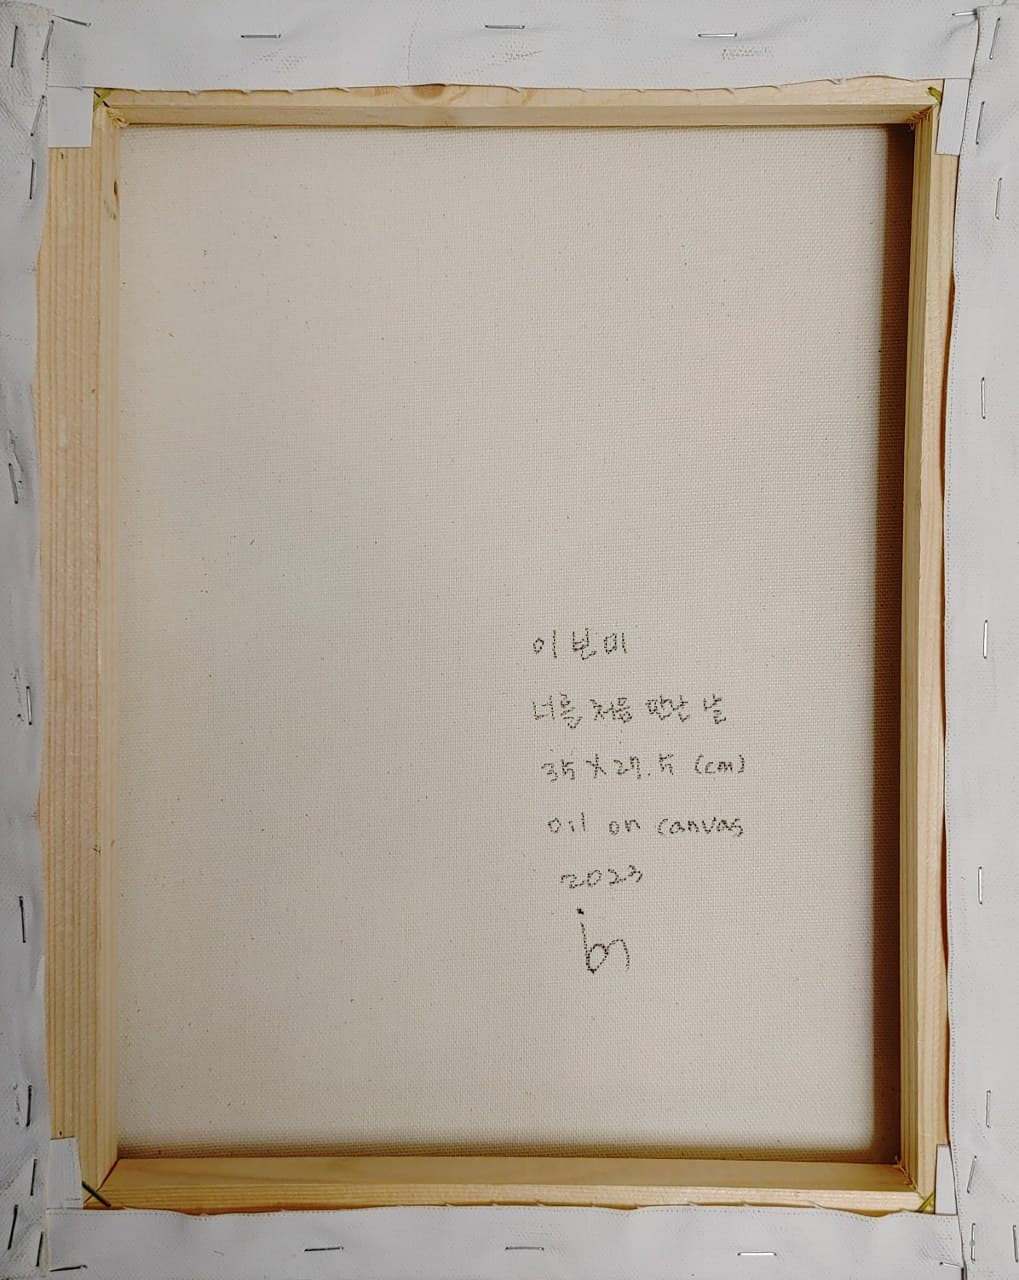 이본미
너를 처음 만난 날
35 X 27.5 (cm)
oil on canvas
2023